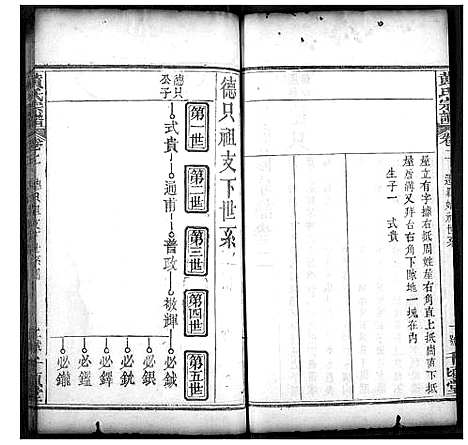 黃氏宗譜
卷二
屋立有字據右抵周姓屋右角直上抵崗直下抵
屋唇溝又拜台右角下隙地一塊在內
生子一 式貴
德只祖支下世系
第一世
第二世
第三世
第四世
第五世
德只公子
式貴
通甫
普政
毅輝
必鉞
必錤
必銃
必鐸
必鑑
必鑨
黃氏宗譜